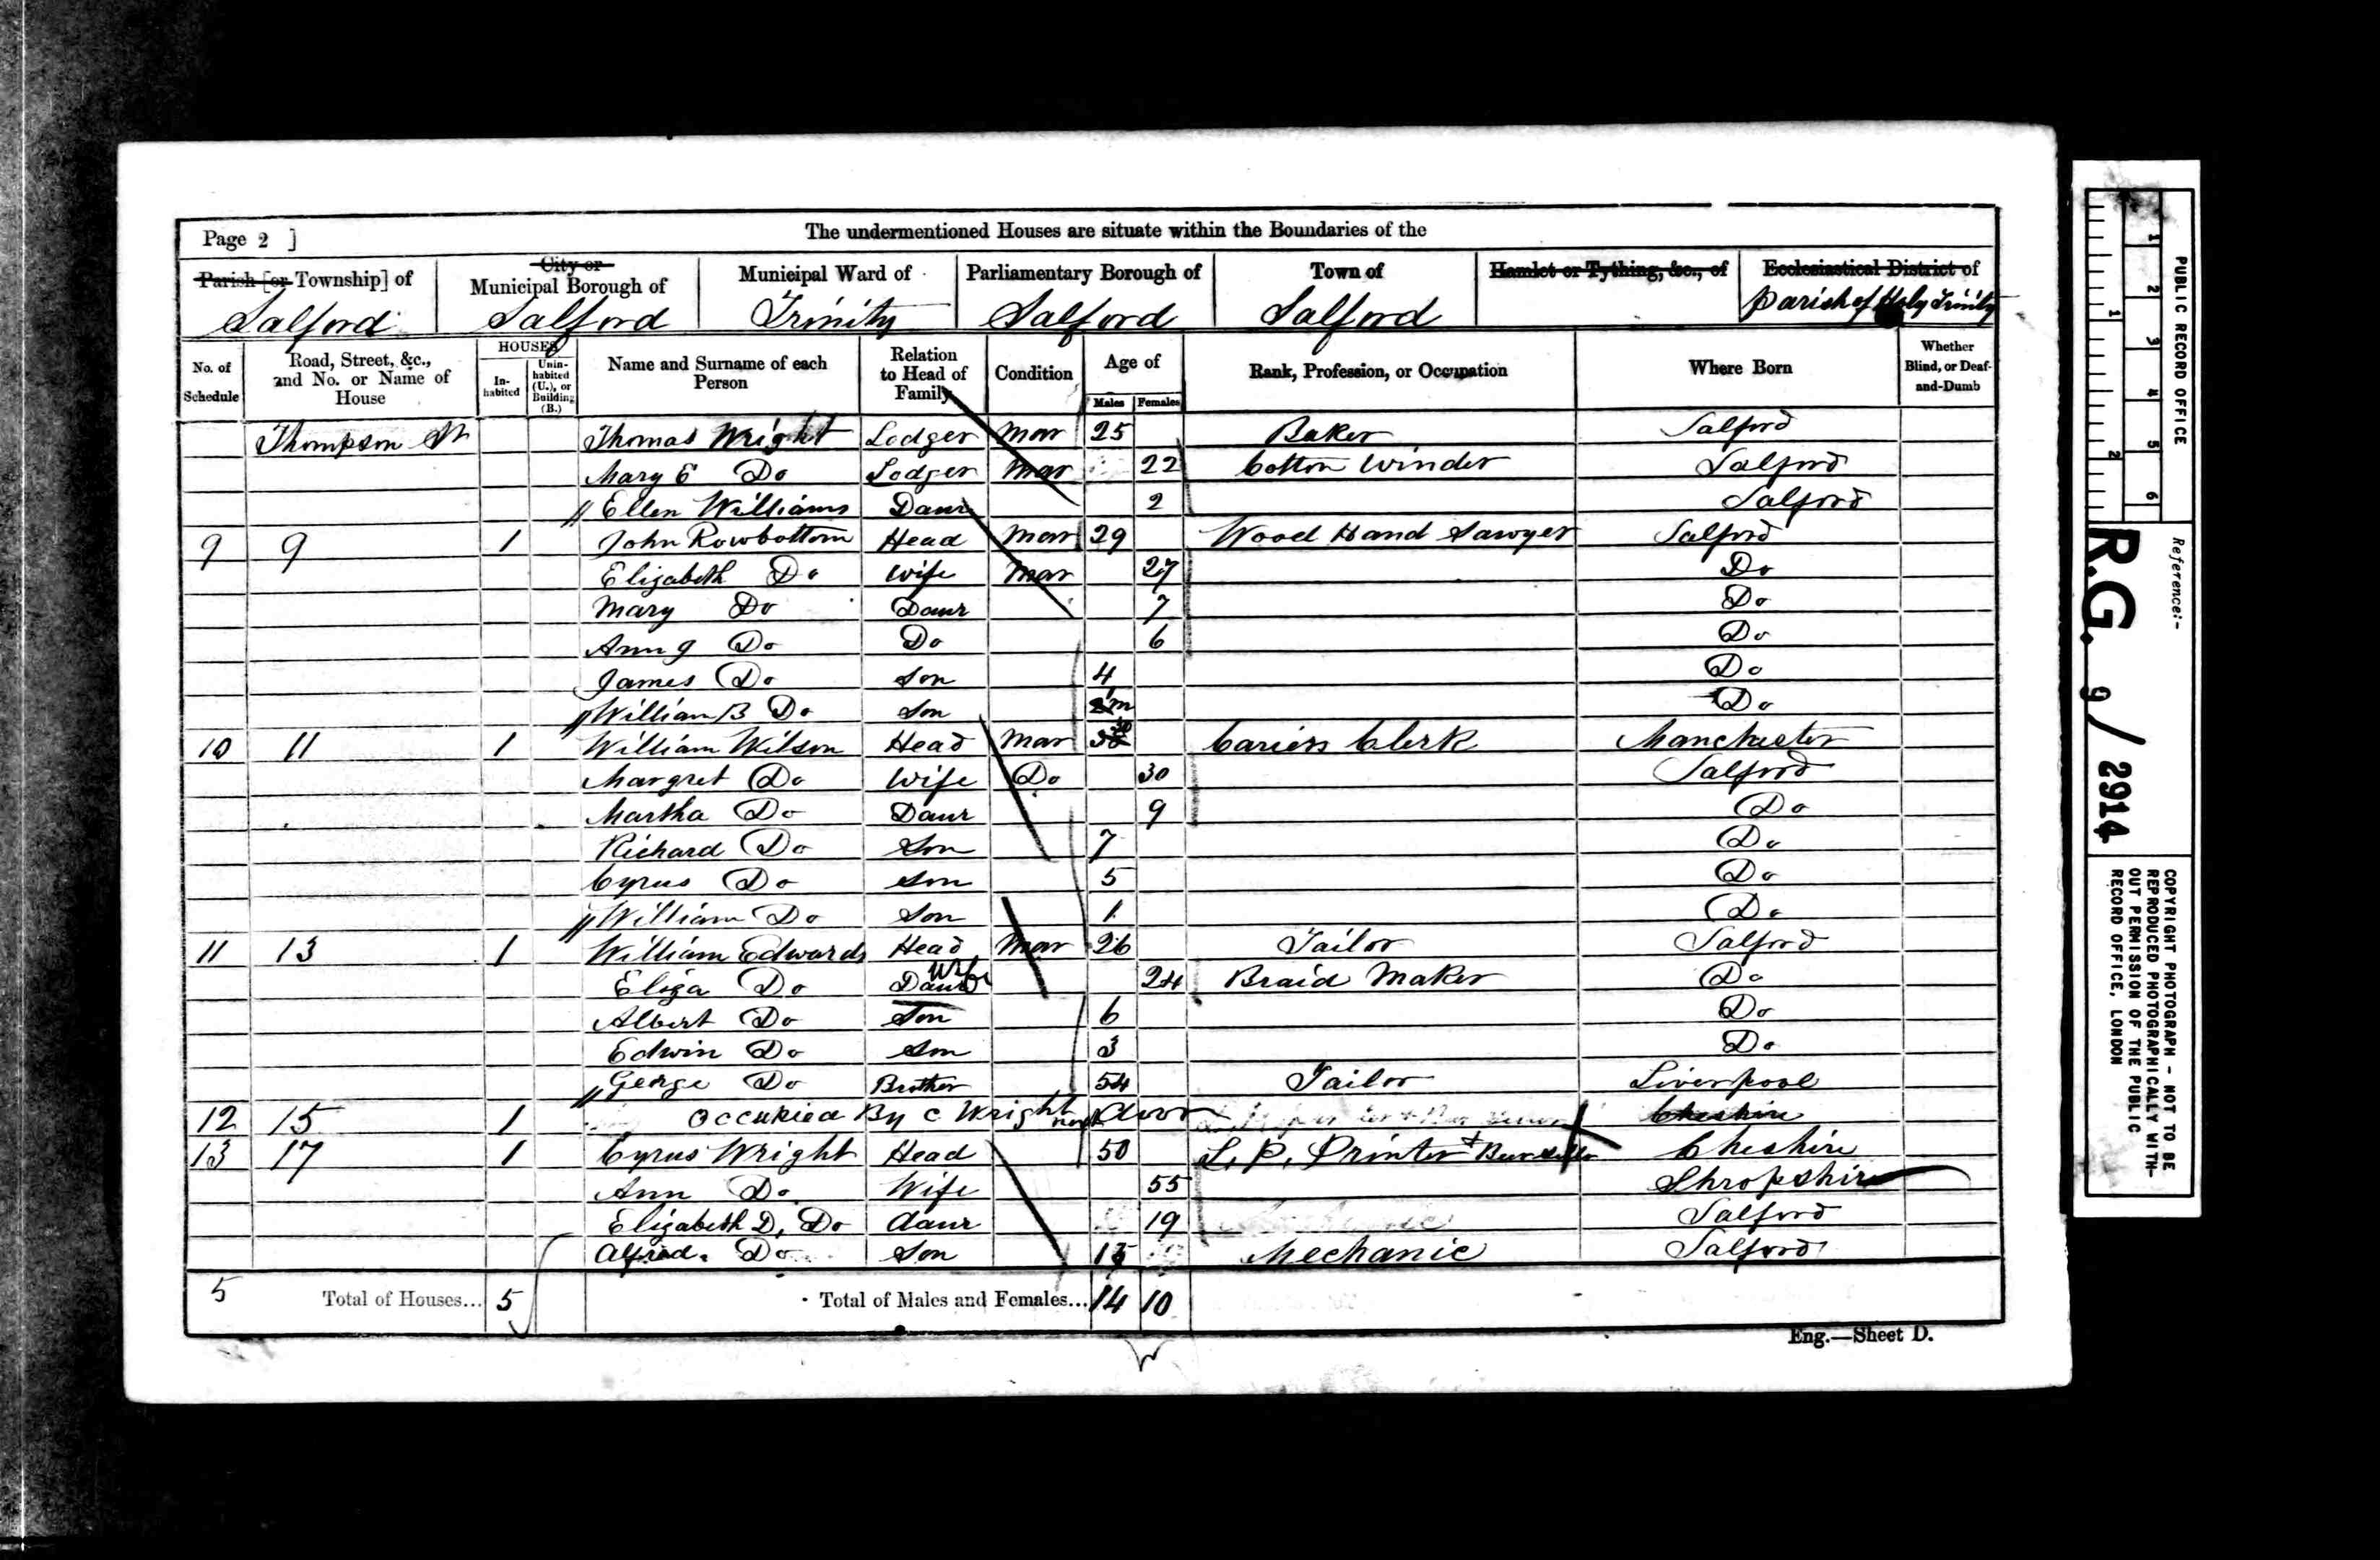 Page 2 ]
The undermentioned Houses are situate within the Boundaries of the
Parish [or Township] of
Salford
City or
Municipal Borough of
Salford
Municipal Ward of
Trinity
Parliamentary Borough of
Salford
Town of
Salford
Hamlet or Tything, &c., of
Ecclesiastical District of
Parish of Holy Trinity
No. of Schedule
Road, Street, &c., and No. or Name of House
HOUSES
In-habited
Unin-habited (U.), or Building (B.)
Name and Surname of each Person
Relation to Head of Family
Condition
Age of
Males
Females
Rank, Profession, or Occupation
Where Born
Whether Blind, or Deaf-and-Dumb
Thompson St Thomas Wright Lodger Mar 25 Baker Salford
Mary E Do Lodger Mar 22 Cotton Winder Salford
Ellen Williams Daur 2 Salford
9 9 1 John Rowbottom Head Mar 29 Wood Hand Sawyer Salford
Elizabeth Do Wife Mar 27 Do
Mary Do Daur 7 Do
Ann J Do Do 6 Do
James Do Son 4 Do
William B Do Son m Do
10 11 1 William Wilson Head Mar 30 Cariers Clerk Manchester
Margret Do Wife Do 30 Salford
Martha Do Daur 9 Do
Richard Do Son 7 Do
Cyrus Do Son 5 Do
William Do Son 1 Do
11 13 1 William Edwards Head Mar 26 Tailor Salford
Eliza Do Daur Wife 24 Braid Maker Do
Albert Do Son 6 Do
Edwin Do Son 3 Do
George Do Brother 54 Tailor Liverpool
12 15 1 Occupied By C Wright next door Cheshire
13 17 1 Cyrus Wright Head 50 L. P. Printer + Cheshire
Ann Do Wife 55 Shropshire
Elizabeth D, Do daur 19 Salford
Alfred. Do Son Mechanic Salford
5 Total of Houses... 5 Total of Males and Females... 14 10
Eng.—Sheet D.
PUBLIC RECORD OFFICE
1 2 3 4 5 6
1 2
Reference:-
R.G. 9/2914
COPYRIGHT PHOTOGRAPH - NOT TO BE
REPRODUCED PHOTOGRAPHICALLY WITH-
OUT PERMISSION OF THE PUBLIC
RECORD OFFICE, LONDON